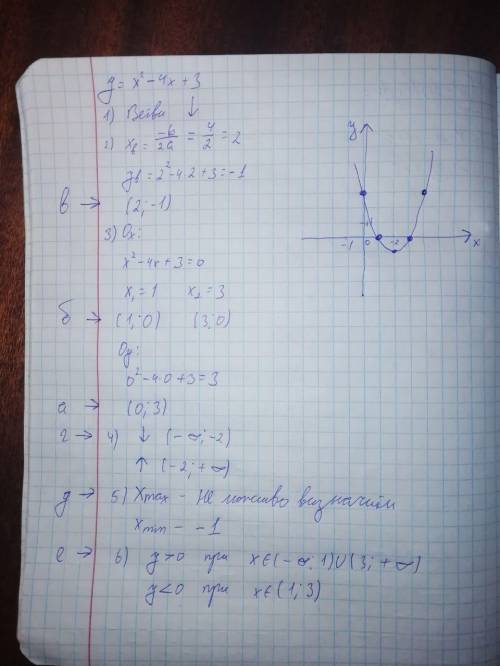 y = x² - 4x + 3
1) Ветви ↓
2) xв = -b/2a = 4/2 = 2
yв = 2² - 4·2 + 3 = -1
в → (2; -1)
3) Ox:
x² - 4x + 3 = 0
x₁ = 1 x₂ = 3
б → (1; 0) (3; 0)
Oy:
0² - 4·0 + 3 = 3
а → (0; 3)
г → 4) ↓ (-∞; -2)
↑ (-2; +∞)
д → 5) Xmax - не можливо визначити
Xmin - -1
е → 6) y > 0 при x ∈ (-∞; 1) U (3; +∞)
y < 0 при x ∈ (1; 3)
y
-1 0 -2 x